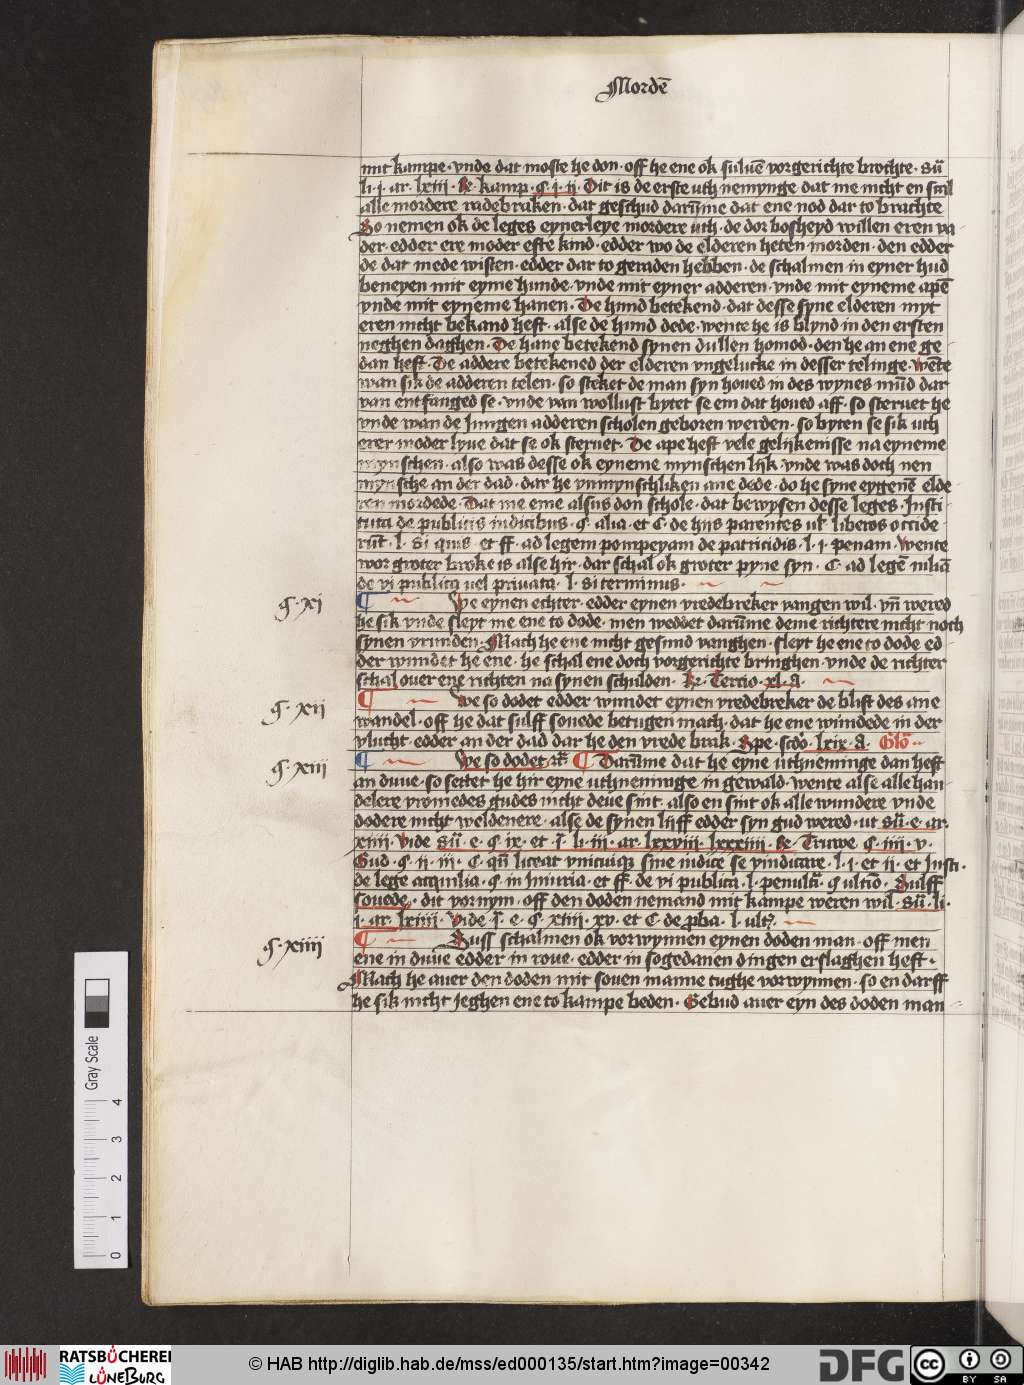 Mordē
mit kampe · vnde dat moste he don · off he ene ok suluē vorgerichte brochte · sū
li · i · ar · lxiii · Re · kamp · ꝗ · i · ii · Dit is de erste vth nemynge dat me nicht en scal
alle mordere radebraken · dat geschud darūme dat ene nod dar to brachte
So nemen ok de leges eynerleye mordere vth · de dor bosheyd willen eren va
der · edder ere moder efte kind · edder wo de elderen heten morden · den edder
de dat mede wisten · edder dar to geraden hebben · de schalmen in eyner hud
beneyen mit eyme hunde · vnde mit eyner adderen · vnde mit eyneme apē
vnde mit eyneme hanen · De hund betekend · dat desse syne elderen nyt
eren nicht bekand heft · alse de hund dede · wente he is blynd in den ersten
neghen daghen · De hane betekend synen dullen homod · den he an ene ge
dan heft · De addere betekened der elderen vngelucke in desser telinge · Wēte
wan sik de adderen telen · so steket de man syn houed in des wyues mūd dar
van entfanged se · vnde van wollust bytet se em dat houed aff · so steruet he
vnde wan de Jungen adderen scholen geboren werden · so byten se sik vth
erer moder lyue dat se ok steruet · De ape heft vele gelijkenisse na eyneme
mynschen · also was desse ok eyneme mynschen lijk · vnde was doch nen
mynsche an der dad · dar he vnmynschliken ane dede · do he syne eygenē elde
ren mordede · Dat me eme alsus don schole · dat bewysen desse leges · Insti
tuta de publicis iudicibus · ꝗ · alia · et C · de hijs parentes ul' liberos occide
rūt · l · Si quis · et ff · ad legem pompeyam de patricidis · l · i · penam · Wente
wor groter broke is alse hir · dar schal ok groter pyne syn · C · ad legē iuliā
de vi publica uel priuata · l · si terminus ·
ꝗ · xi We eynen echter · edder eynen vredebreker vangen wil · vn̄ wered
he sik vnde sleyt me ene to dode · men weddet darūme deme richtere nicht noch
synen vrunden · Mach he ene nicht gesund vanghen · sleyt he ene to dode ed
der wundet he ene · he schal ene doch vorgerichte bringhen · vnde de richter
schal ouer ene richten na synen schulden · Re · Tercio · xl · A ·
ꝗ · xii We so dodet edder wundet eynen vredebreker de blift des ane
wandel · off he dat sulff souede betugen mach · dat he ene wundede in der
vlucht · edder an der dad dar he den vrede brak · Spe · scdō · lxix · A · Glō
ꝗ · xiii We so dodet rc̄ Darūme dat he eyne vthneminge dan heft
an duue · so settet he hir eyne vthneminge in gewald · wente alse alle han
delere vromedes gudes nicht deue sint · also en sint ok alle wundere vnde
dodere nicht weldenere · alse de synen lijff edder syn gud wered · ut sū · e · ar ·
xiiii · Vide sū · e · ꝗ · ix · et ī · li · iii · ar · lxxviii · lxxxiiii · Re · Truwe · ꝗ · iiii · v ·
Gud · ꝗ · ii · iii · C · qn̄ liceat vnicuiqꝫ sine iudice se vindicare · l · i · et ii · et Insti ·
de lege acquilia · ꝗ · in Iniuria · et ff · de vi publica · l · penult̄ · ꝗ ultīo · Sulff
souede · dit vornym · off den doden nemand mit kampe weren wil · sū · li ·
i · ar · lxiiii · Vide ī · e · ꝗ · xiiii · xv · et C · de p̄ba · l · ult̄ ·
ꝗ · xiiii Suss schalmen ok vorwynnen eynen doden man · off men
ene in duue edder in roue · edder in sogedanen dingen erslaghen heft ·
Mach he auer den doden mit souen manne tughe vorwynnen · so en darff
he sik nicht jeghen ene to kampe beden · Gebud auer eyn des doden man
Gray Scale
0 1 2 3 4
RATSBÜCHEREI LÜNEBURG
© HAB http://diglib.hab.de/mss/ed000135/start.htm?image=00342
DFG
cc BY SA